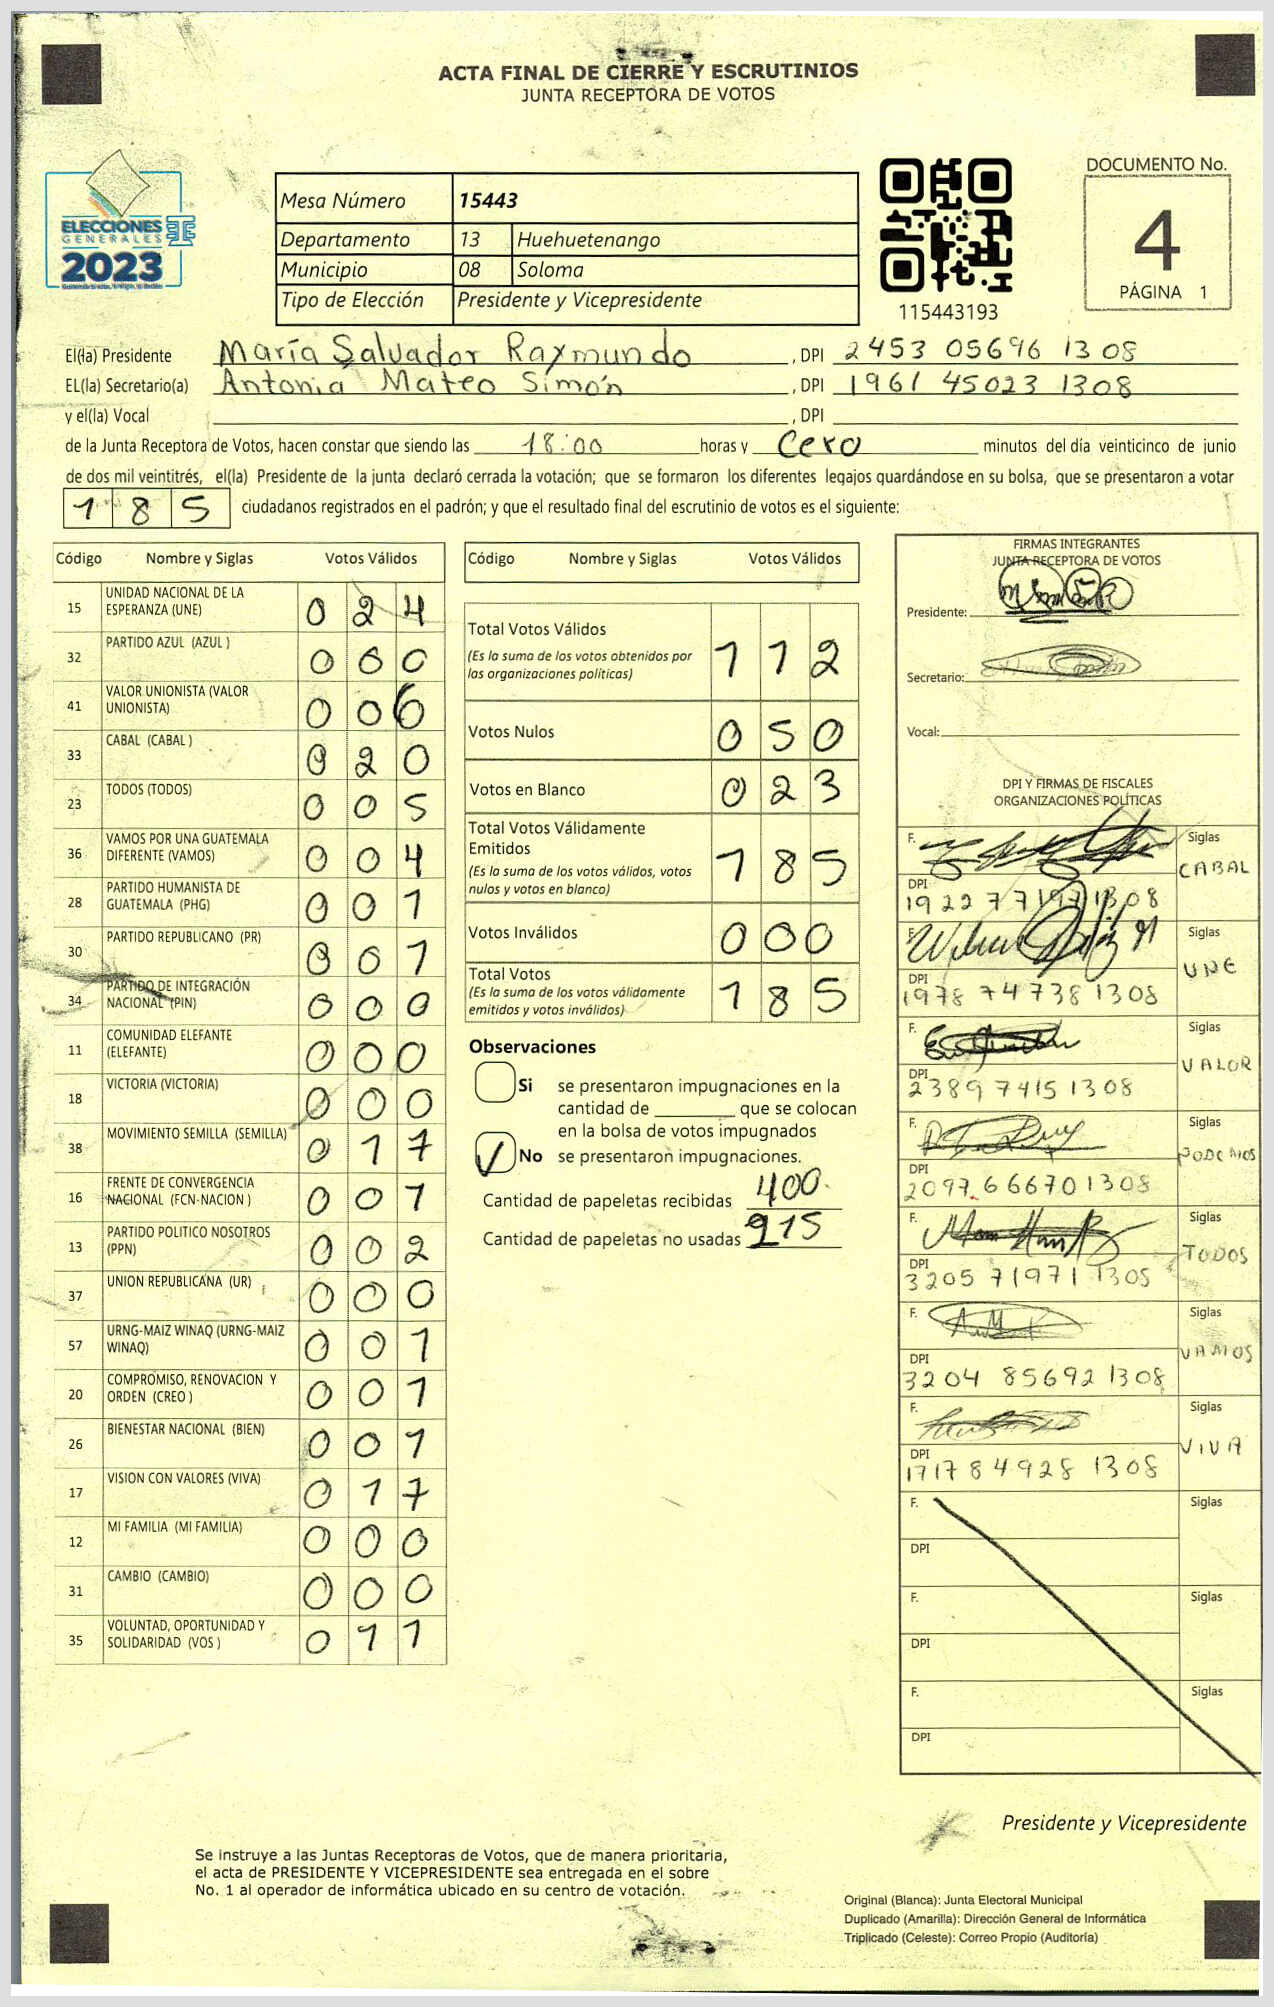 ACTA FINAL DE CIERRE Y ESCRUTINIOS
JUNTA RECEPTORA DE VOTOS
ELECCIONES
GENERALES
2023
Mesa Número 15443
Departamento 13 Huehuetenango
Municipio 08 Soloma
Tipo de Elección Presidente y Vicepresidente
115443193
DOCUMENTO No.
4
PÁGINA 1
El(la) Presidente María Salvador Raymundo , DPI 2453 05696 1308
EL(la) Secretario(a) Antonia Mateo Simón , DPI 1961 45023 1308
y el(la) Vocal , DPI
de la Junta Receptora de Votos, hacen constar que siendo las 18:00 horas y Cero minutos del día veinticinco de junio
de dos mil veintitrés, el(la) Presidente de la junta declaró cerrada la votación; que se formaron los diferentes legajos guardándose en su bolsa, que se presentaron a votar
185 ciudadanos registrados en el padrón; y que el resultado final del escrutinio de votos es el siguiente:
Código Nombre y Siglas Votos Válidos
15 UNIDAD NACIONAL DE LA ESPERANZA (UNE) 024
32 PARTIDO AZUL (AZUL ) 000
41 VALOR UNIONISTA (VALOR UNIONISTA) 006
33 CABAL (CABAL ) 020
23 TODOS (TODOS) 005
36 VAMOS POR UNA GUATEMALA DIFERENTE (VAMOS) 004
28 PARTIDO HUMANISTA DE GUATEMALA (PHG) 001
30 PARTIDO REPUBLICANO (PR) 001
34 PARTIDO DE INTEGRACIÓN NACIONAL (PIN) 000
11 COMUNIDAD ELEFANTE (ELEFANTE) 000
18 VICTORIA (VICTORIA) 000
38 MOVIMIENTO SEMILLA (SEMILLA) 017
16 FRENTE DE CONVERGENCIA NACIONAL (FCN-NACION ) 001
13 PARTIDO POLITICO NOSOTROS (PPN) 002
37 UNION REPUBLICANA (UR) 000
57 URNG-MAIZ WINAQ (URNG-MAIZ WINAQ) 001
20 COMPROMISO, RENOVACION Y ORDEN (CREO ) 001
26 BIENESTAR NACIONAL (BIEN) 001
17 VISION CON VALORES (VIVA) 017
12 MI FAMILIA (MI FAMILIA) 000
31 CAMBIO (CAMBIO) 000
35 VOLUNTAD, OPORTUNIDAD Y SOLIDARIDAD (VOS ) 011
Código Nombre y Siglas Votos Válidos
Total Votos Válidos 112
(Es la suma de los votos obtenidos por
las organizaciones políticas)
Votos Nulos 050
Votos en Blanco 023
Total Votos Válidamente
Emitidos 185
(Es la suma de los votos válidos, votos
nulos y votos en blanco)
Votos Inválidos 000
Total Votos 185
(Es la suma de los votos válidamente
emitidos y votos inválidos)
Observaciones
Si se presentaron impugnaciones en la
cantidad de que se colocan
en la bolsa de votos impugnados
No se presentaron impugnaciones.
Cantidad de papeletas recibidas 400
Cantidad de papeletas no usadas 215
FIRMAS INTEGRANTES
JUNTA RECEPTORA DE VOTOS
Presidente:
Secretario:
Vocal:
DPI Y FIRMAS DE FISCALES
ORGANIZACIONES POLÍTICAS
F. Siglas CABAL
DPI 1922 77197 1308
F. Siglas UNE
DPI 1978 74738 1308
F. Siglas VALOR
DPI 2389 7415 1308
F. Siglas PODEMOS
DPI 2097 66670 1308
F. Siglas TODOS
DPI 3205 71971 1305
F. Siglas VAMOS
DPI 3204 85692 1308
F. Siglas VIVA
DPI 1717 84928 1308
F. Siglas
DPI
F. Siglas
DPI
F. Siglas
DPI
Presidente y Vicepresidente
Se instruye a las Juntas Receptoras de Votos, que de manera prioritaria,
el acta de PRESIDENTE Y VICEPRESIDENTE sea entregada en el sobre
No. 1 al operador de informática ubicado en su centro de votación.
Original (Blanca): Junta Electoral Municipal
Duplicado (Amarilla): Dirección General de Informática
Triplicado (Celeste): Correo Propio (Auditoría)